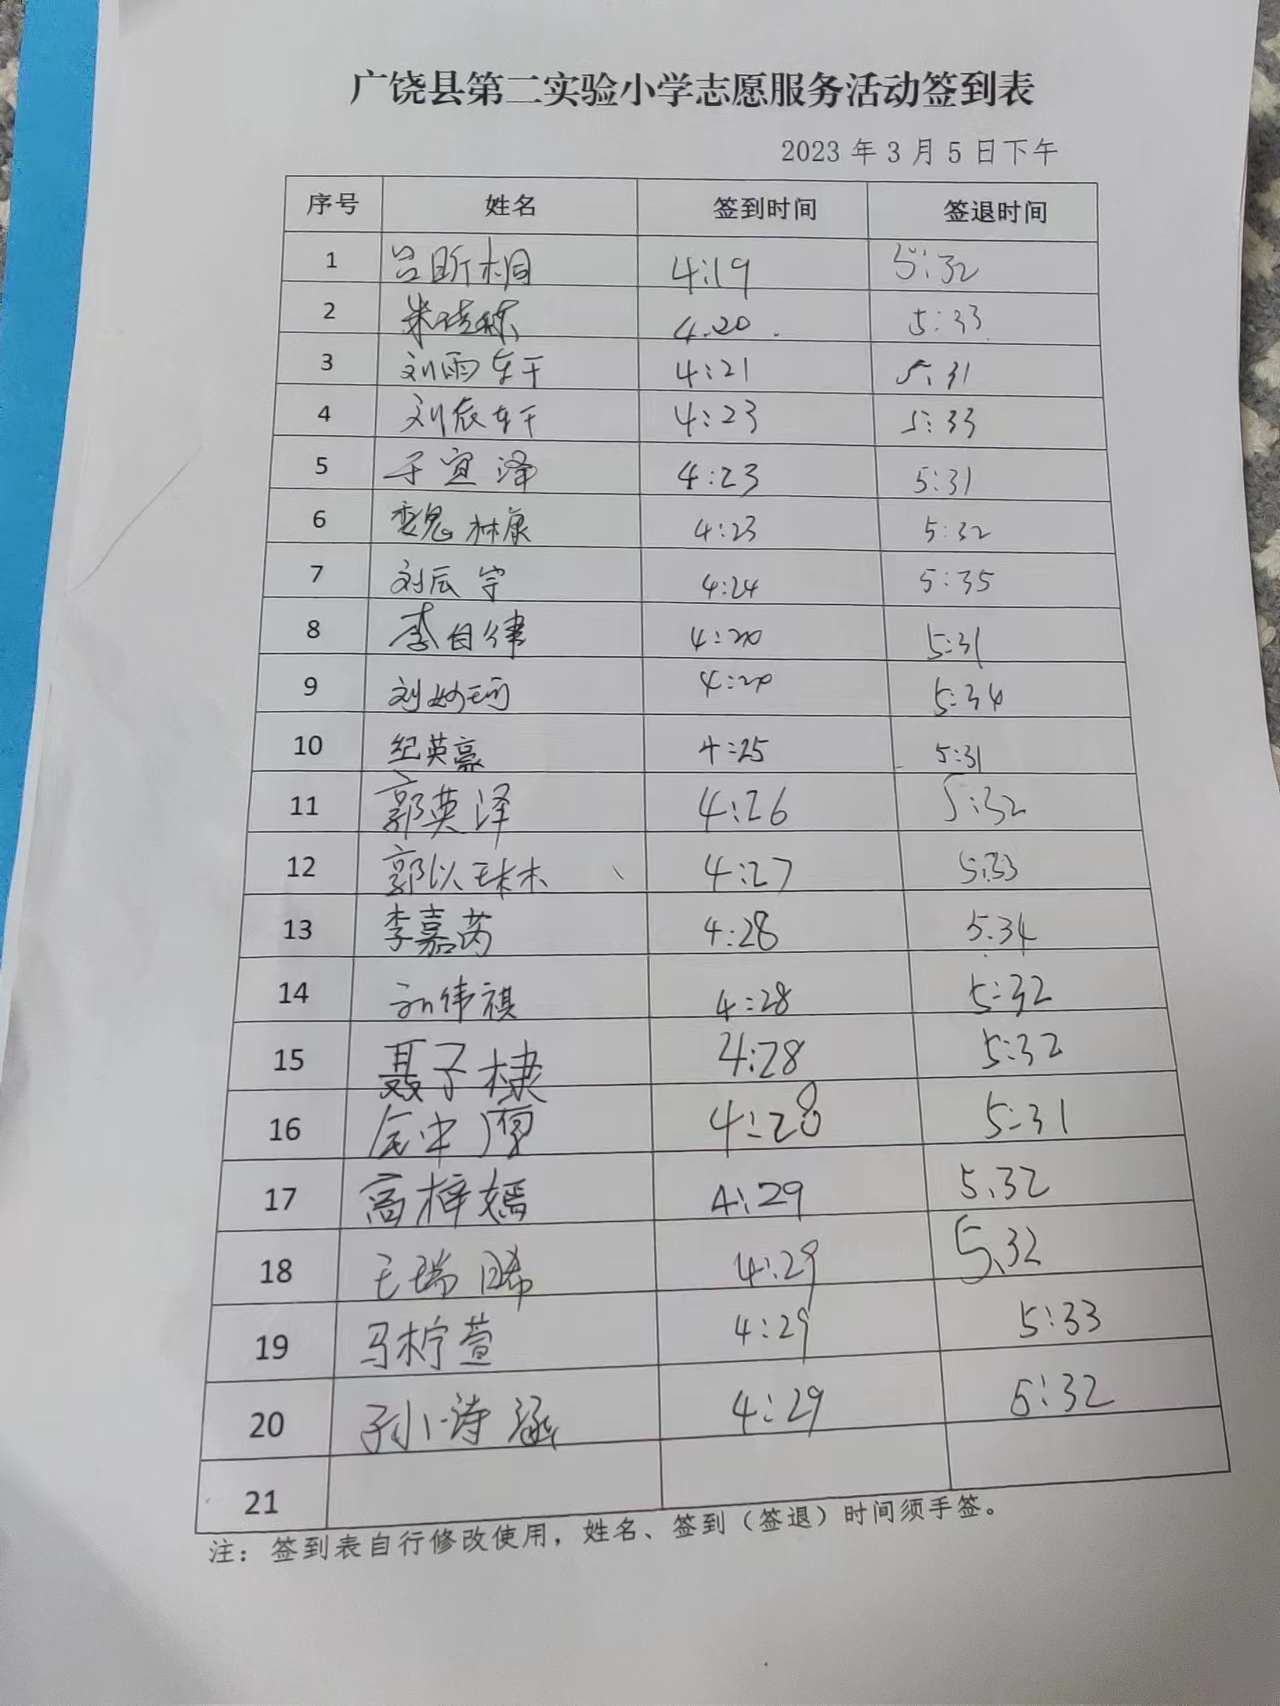 广饶县第二实验小学志愿服务活动签到表
2023 年 3 月 5 日下午
序号 姓名 签到时间 签退时间
1 吕昕桐 4:19 5:32
2 4:20 5:33
3 刘雨轩 4:21 5:31
4 刘宸轩 4:23 5:33
5 于宜泽 4:23 5:31
6 魏林康 4:23 5:32
7 刘辰宇 4:24 5:35
8 李自律 4:20 5:31
9 刘妙珂 4:20 5:34
10 纪英豪 4:25 5:31
11 郭英泽 4:26 5:32
12 郭以琳 4:27 5:33
13 李嘉芮 4:28 5.34
14 刘伟祺 4:28 5:32
15 聂子棣 4:28 5:32
16 4:28 5:31
17 高梓嫣 4:29 5.32
18 王瑞晞 4:29 5.32
19 马柠萱 4:29 5:33
20 孙诗涵 4:29 5:32
21
注：签到表自行修改使用，姓名、签到（签退）时间须手签。